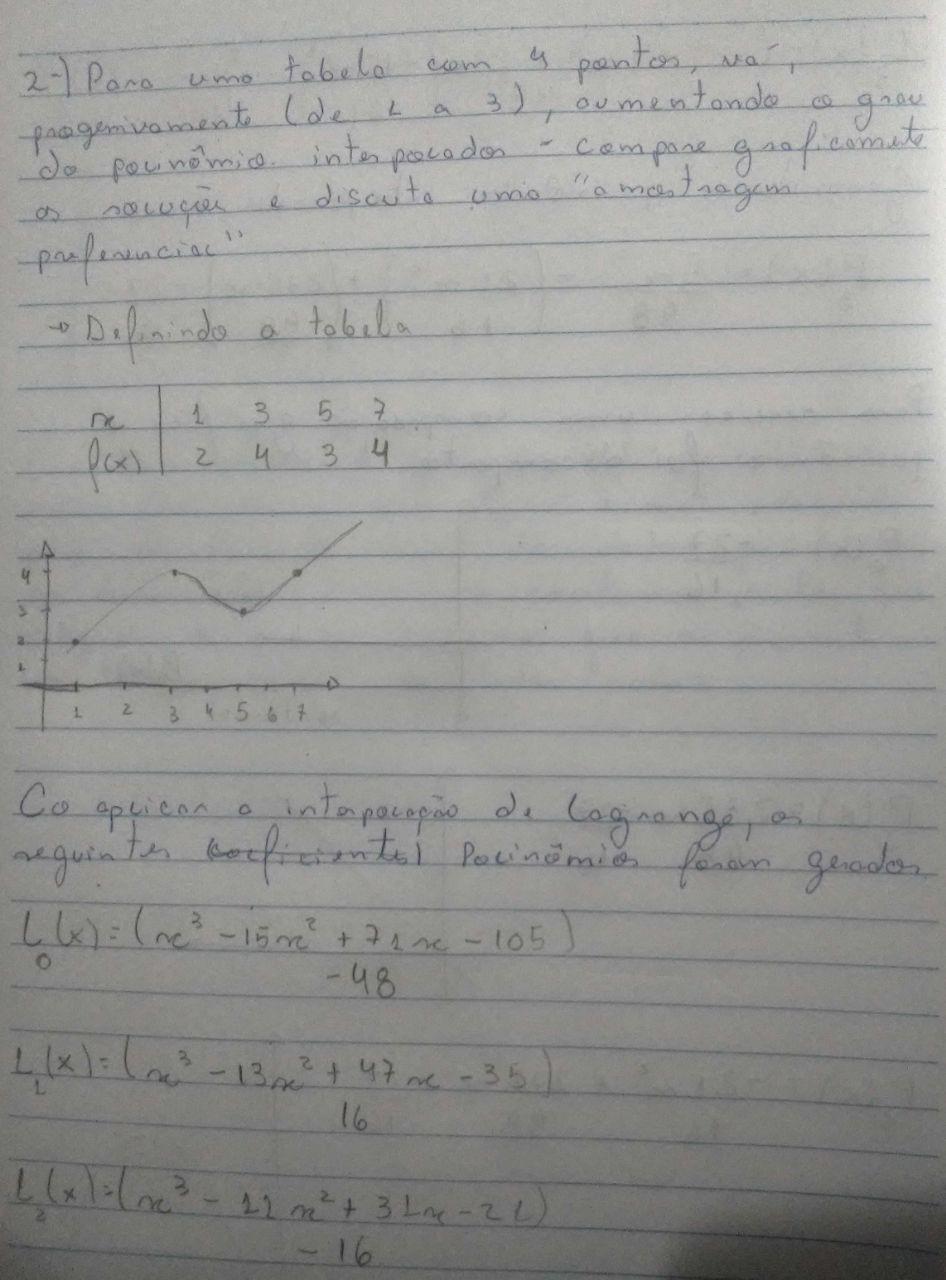 2-) Para uma tabela com 4 pontos, vá,
progressivamente (de 1 a 3), aumentando o grau
do polinômio interpolador - compare graficamete
as solução e discuta uma "amostragem
preferencial"
→ Definindo a tabela
x 1 3 5 7
f(x) 2 4 3 4
4
3
2
1
1 2 3 4 5 6 7
Co aplicar a interpolação de Lagrange, os
seguintes (coeficientes) Polinômios foram gerados
L0(x)=(x³ -15x² + 71x - 105)
-48
L1(x)=(x³ -13x² + 47x - 35)
16
L2(x)=(x³ - 11x² + 31x - 21)
-16